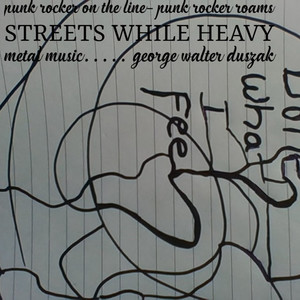 punk rocker on the line- punk rocker roams
STREETS WHILE HEAVY
metal music..... george walter duszak
wha
I
Feel